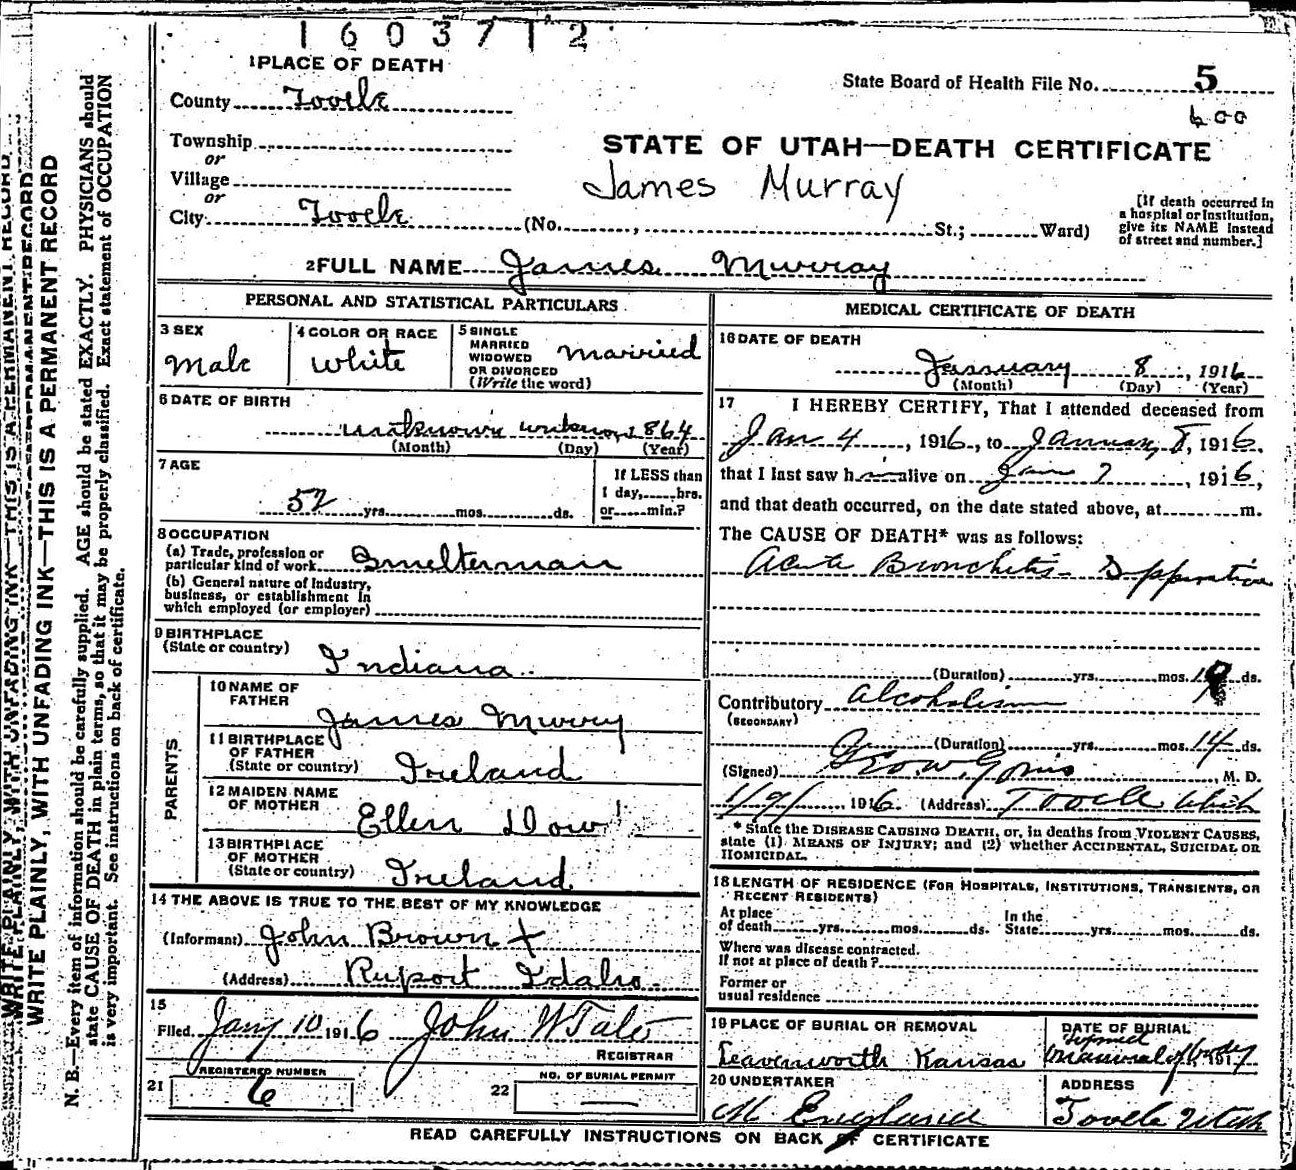 1603712
1 PLACE OF DEATH
State Board of Health File No. 5
600
County Tooele
Township
or
Village
or
City Tooele
STATE OF UTAH—DEATH CERTIFICATE
James Murray
(No. , St.; Ward)
[If death occurred in
a hospital or institution,
give its NAME instead
of street and number.]
2 FULL NAME James Murray
PERSONAL AND STATISTICAL PARTICULARS
3 SEX
Male
4 COLOR OR RACE
White
5 SINGLE
MARRIED
WIDOWED
OR DIVORCED
(Write the word)
Married
6 DATE OF BIRTH
unknown unknown 1864
(Month) (Day) (Year)
7 AGE
52 yrs. mos. ds.
If LESS than
1 day, hrs.
or min.?
8 OCCUPATION
(a) Trade, profession or
particular kind of work Smelterman
(b) General nature of Industry,
business, or establishment in
which employed (or employer)
9 BIRTHPLACE
(State or country) Indiana
PARENTS
10 NAME OF
FATHER James Murry
11 BIRTHPLACE
OF FATHER
(State or country) Ireland
12 MAIDEN NAME
OF MOTHER Ellen Dow
13 BIRTHPLACE
OF MOTHER
(State or country) Ireland
14 THE ABOVE IS TRUE TO THE BEST OF MY KNOWLEDGE
(Informant) John Brown X
(Address) Ruport Idaho.
15
Filed Jany 10 1916 John W Tate
REGISTRAR
21 REGISTERED NUMBER
6
22 NO. OF BURIAL PERMIT
MEDICAL CERTIFICATE OF DEATH
16 DATE OF DEATH
January 8, 1916
(Month) (Day) (Year)
17 I HEREBY CERTIFY, That I attended deceased from
Jan 4, 1916, to January 8, 1916,
that I last saw him alive on Jan 7, 1916,
and that death occurred, on the date stated above, at m.
The CAUSE OF DEATH* was as follows:
Acute Bronchitis
(Duration) yrs. mos. ds.
Contributory Alcoholism
(SECONDARY)
(Duration) yrs. mos. 14 ds.
(Signed) Geo. W. , M. D.
1/9/ 1916. (Address) Tooele Utah
* State the DISEASE CAUSING DEATH, or, in deaths from VIOLENT CAUSES,
state (1) MEANS OF INJURY; and (2) whether ACCIDENTAL, SUICIDAL OR
HOMICIDAL.
18 LENGTH OF RESIDENCE (FOR HOSPITALS, INSTITUTIONS, TRANSIENTS, OR
RECENT RESIDENTS)
At place
of death yrs. mos. ds.
In the
State yrs. mos. ds.
Where was disease contracted.
If not at place of death?
Former or
usual residence
19 PLACE OF BURIAL OR REMOVAL
Leavenworth Kansas
DATE OF BURIAL
removal of body, 191
20 UNDERTAKER
M England
ADDRESS
Tooele Utah
READ CAREFULLY INSTRUCTIONS ON BACK OF CERTIFICATE
WRITE PLAINLY, WITH UNFADING INK—THIS IS A PERMANENT RECORD
N. B.—Every item of information should be carefully supplied. AGE should be stated EXACTLY. PHYSICIANS should
state CAUSE OF DEATH in plain terms, so that it may be properly classified. Exact statement of OCCUPATION
is very important. See instructions on back of certificate.